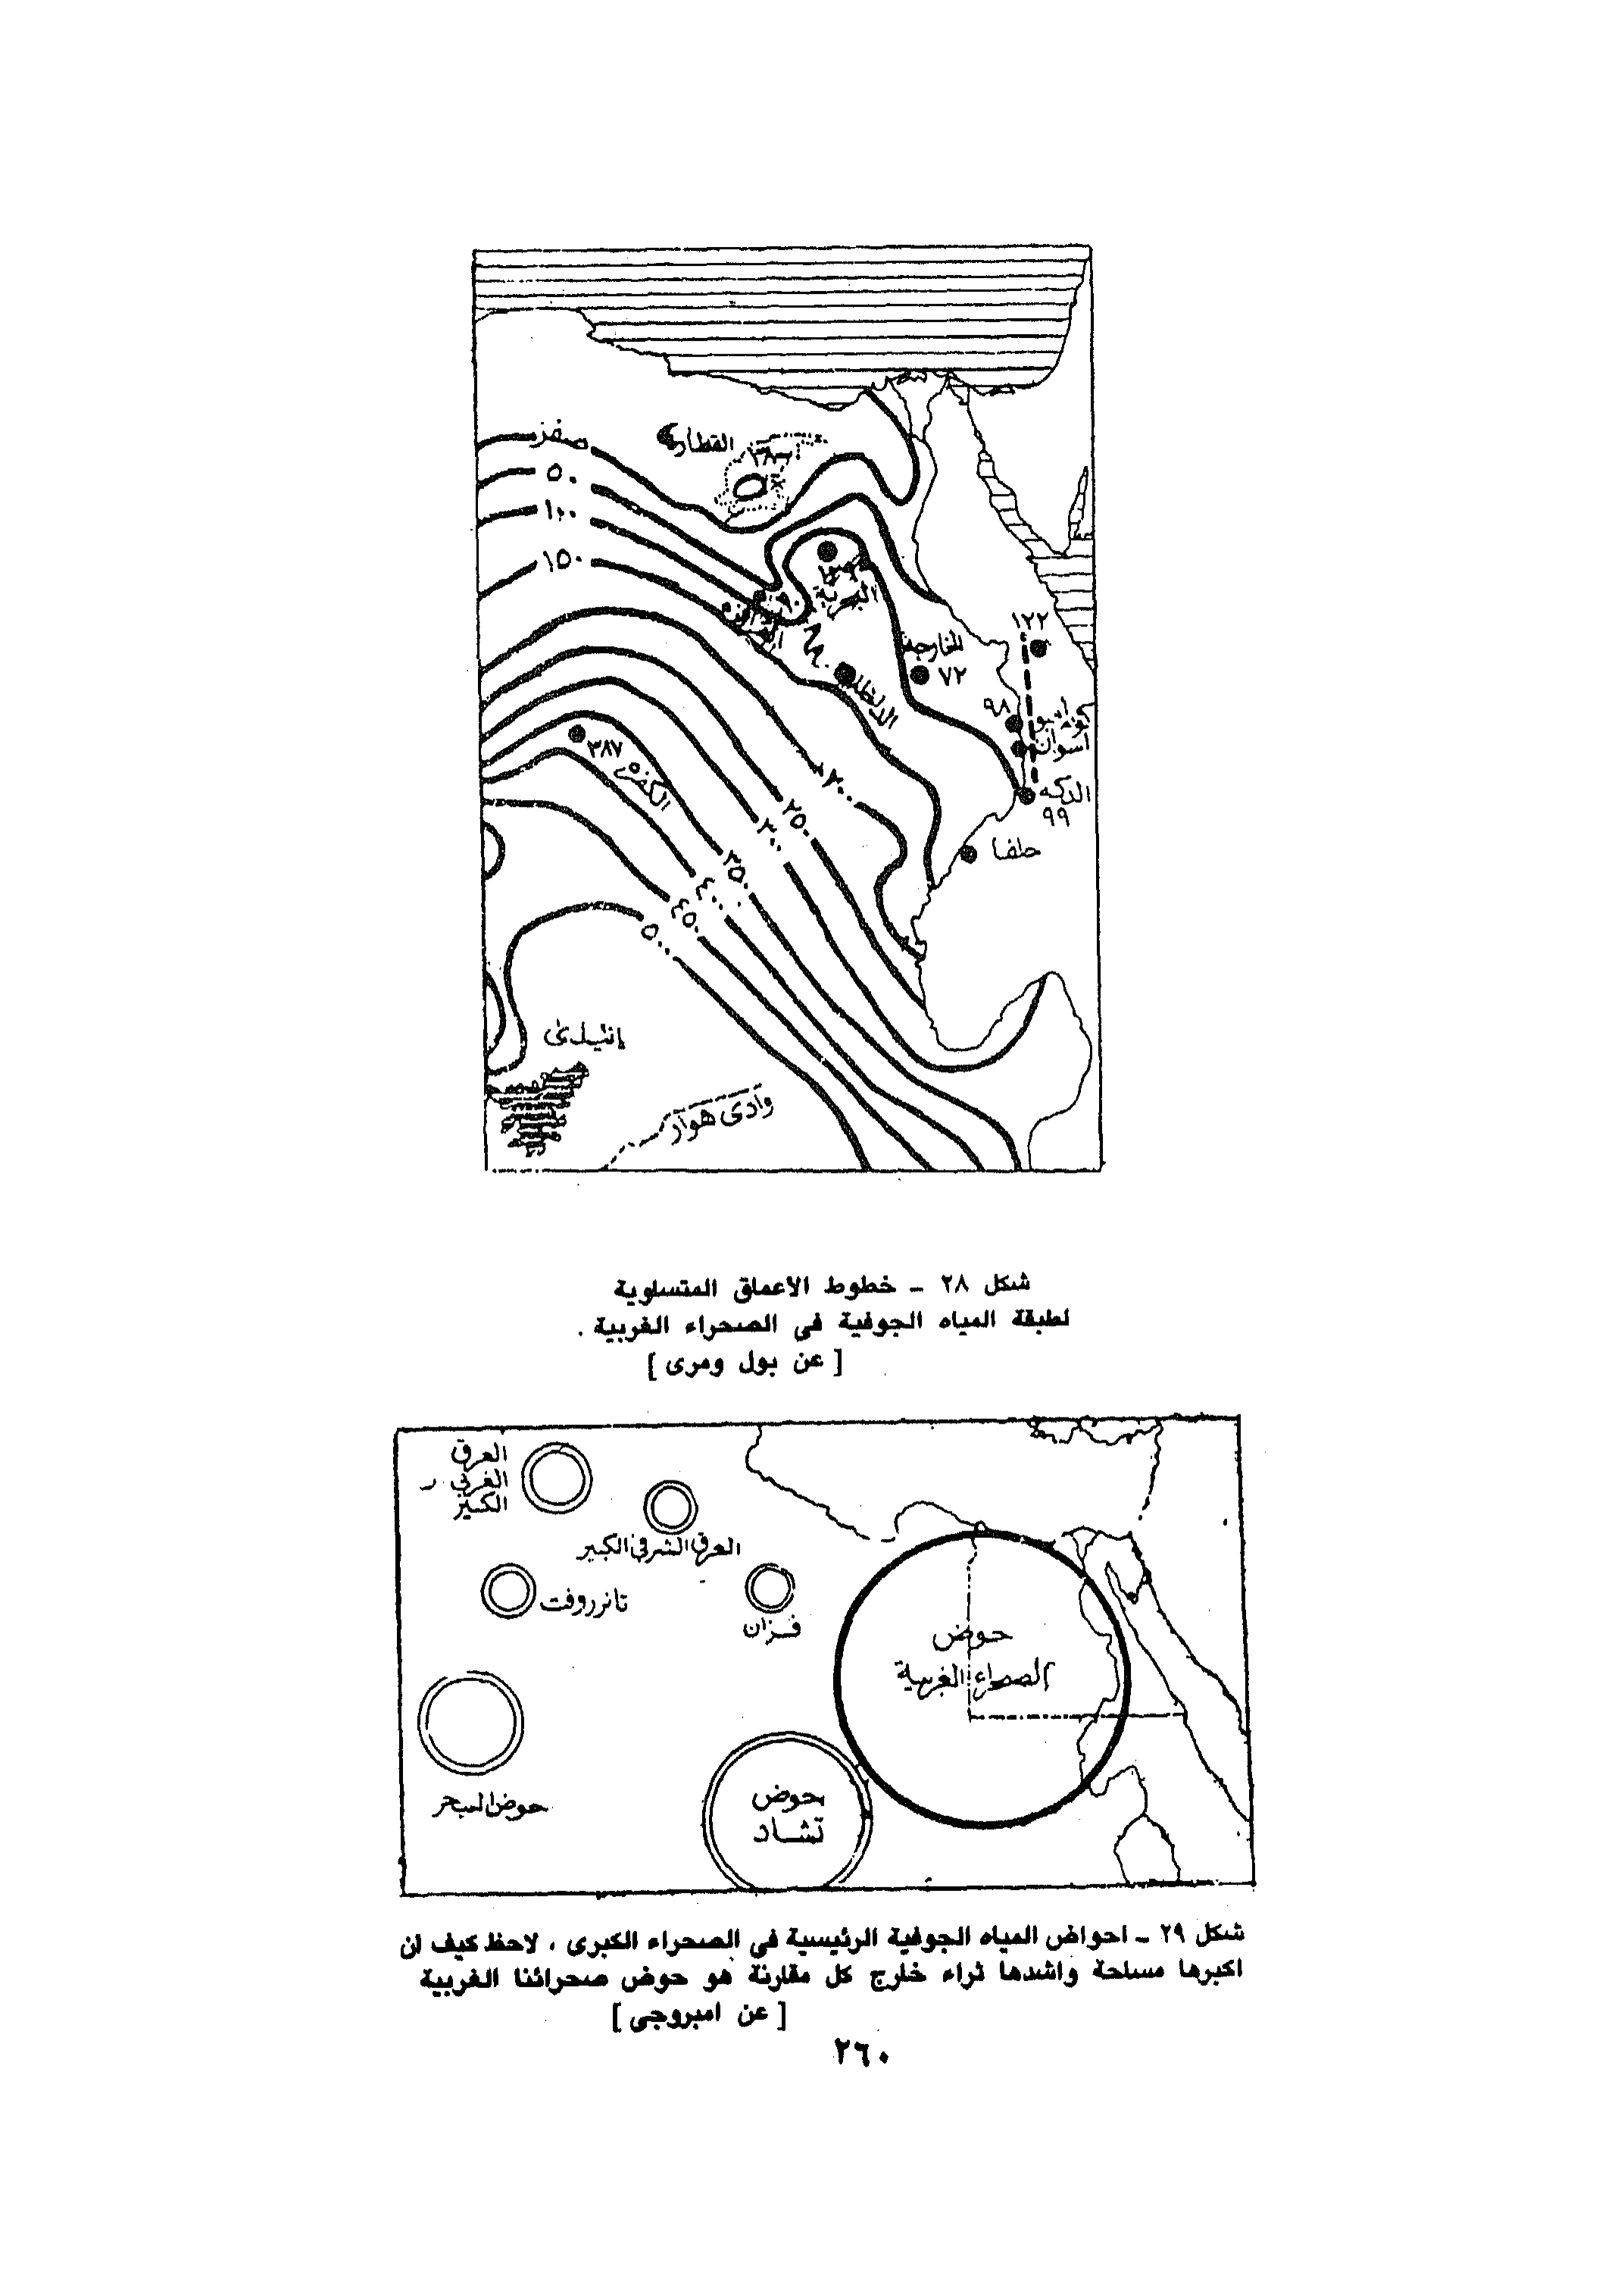 القطارة
-٣٨
صفر
٥٠
١٠٠
١٥٠
البحرية
الفرافرة
٩٠
الخارجة
٧٢
١٢٢
٩٨
كوم امبو
اسوان
الداخلة
الدكه
٩٩
حلفا
٣٨٧
الكفره
٢٠٠
٢٥٠
٣٠٠
٣٥٠
٤٠٠
٤٥٠
٥٠٠
إنيدى
وادى هوار
شكل ٢٨ – خطوط الأعماق المتساوية
لطبقة المياه الجوفية فى الصحراء الغربية .
[ عن بول ومرى ]
العرق
الغربى
الكبير
العرق الشرقى الكبير
تانزروفت
فـزان
حوض
الصحراء الغربية
حوض
تشاد
شكل ٢٩ – احواض المياه الجوفية الرئيسية فى الصحراء الكبرى ، لاحظ كيف ان
اكبرها مساحة واشدها ثراء خارج كل مقارنة هو حوض صحرائنا الغربية
[ عن امبروجى ]
٢٦٠